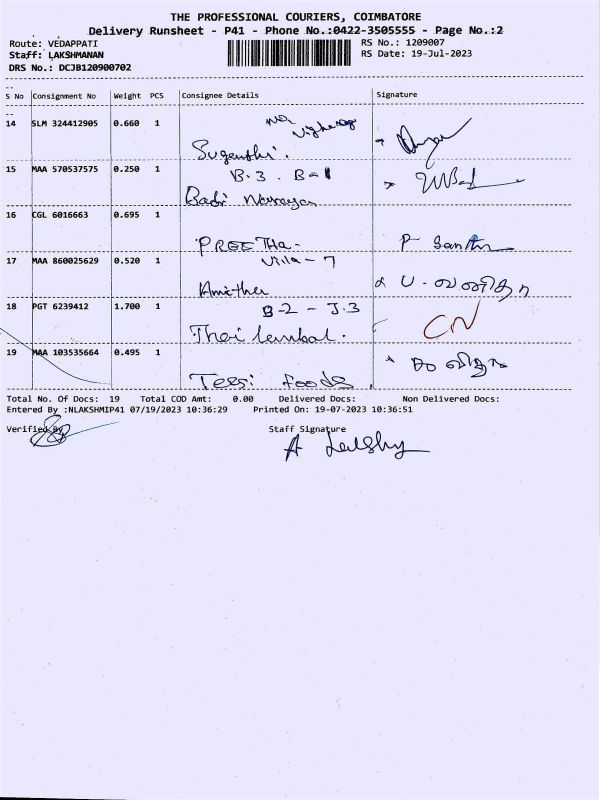 THE PROFESSIONAL COURIERS, COIMBATORE
Delivery Runsheet - P41 - Phone No.:0422-3505555 - Page No.:2
Route: VEDAPPATI
RS No.: 1209007
Staff: LAKSHMANAN
RS Date: 19-Jul-2023
DRS No.: DCJB120900702
S No Consignment No Weight PCS Consignee Details Signature
14 SLM 324412905 0.660 1
Sugenthi.
15 MAA 570537575 0.250 1 B-3. B-1
Badri Narayan
16 CGL 6016663 0.695 1
PREETHa- P Santhi
17 MAA 860025629 0.520 1 Villa - 7
Amirtha U.
18 PGT 6239412 1.700 1 B-2 - J.3
CN
19 MAA 103535664 0.495 1
foods
Total No. Of Docs: 19 Total COD Amt: 0.00 Delivered Docs: Non Delivered Docs:
Entered By :NLAKSHMIP41 07/19/2023 10:36:29 Printed On: 19-07-2023 10:36:51
Verified By Staff Signature